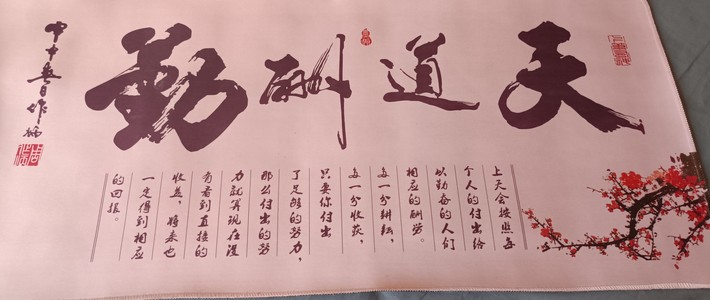 天道酬勤
上天会按照每
个人的付出给
以勤奋的人们
相应的酬劳。
每一分耕耘，
每一分收获，
只要你付出
了足够的努力，
那么付出的努
力就算现在没
有看到直接的
收益，将来也
一定得到相应
的回报。
甲申春日作